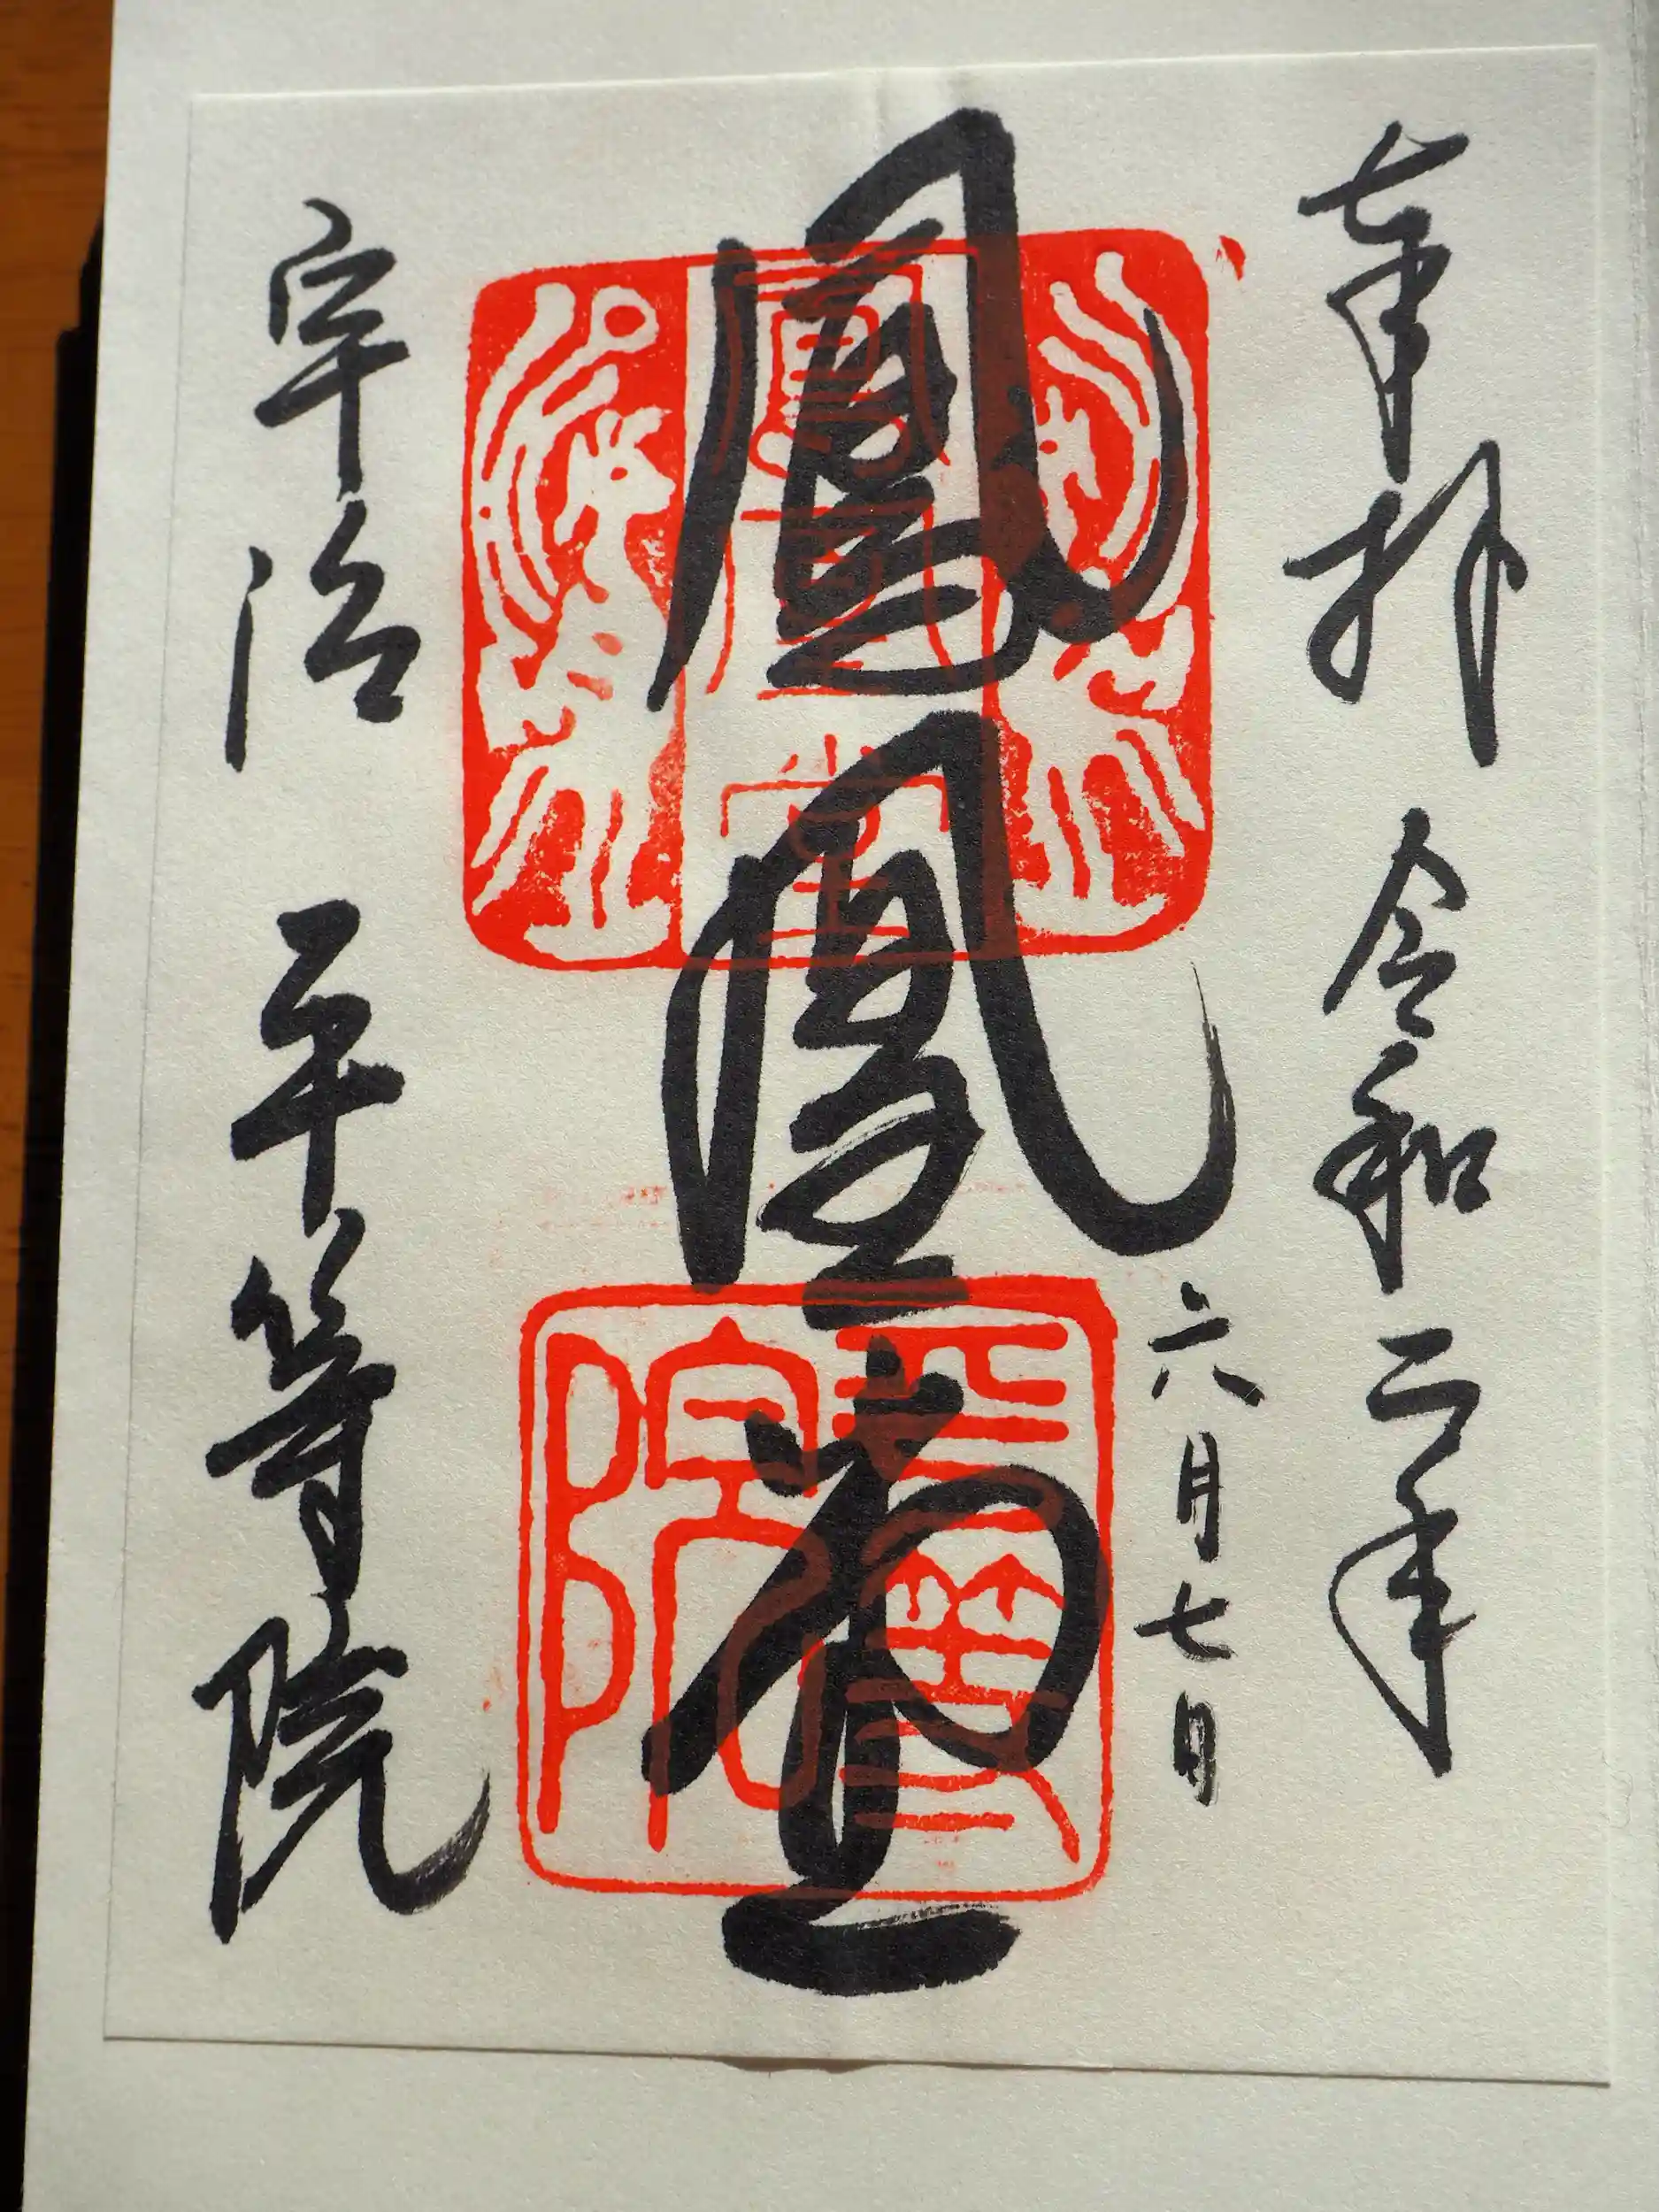 奉拝 令和二年
六月七日
鳳凰堂
鳳凰堂
平等院
宇治 平等院